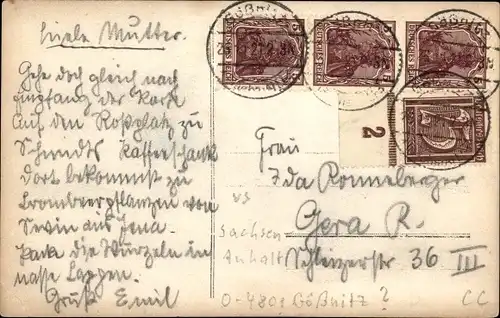 Liebe Mutter.
Gehe doch gleich nach
Empfang der Karte
auf den Roßplatz zu
Schmidts Kaffeeschank
dort bekommst zu
Brombeerpflanzen von
Erwin aus Jena.
Pack die Wurzeln in
nasse Lappen.
Gruß Emil
Gößnitz
2
75
Frau
Ida Ronneberger
Gera R.
Schleizerstr 36 III
vs
Sachsen
Anhalt
O-4801 Gößnitz ?
CC